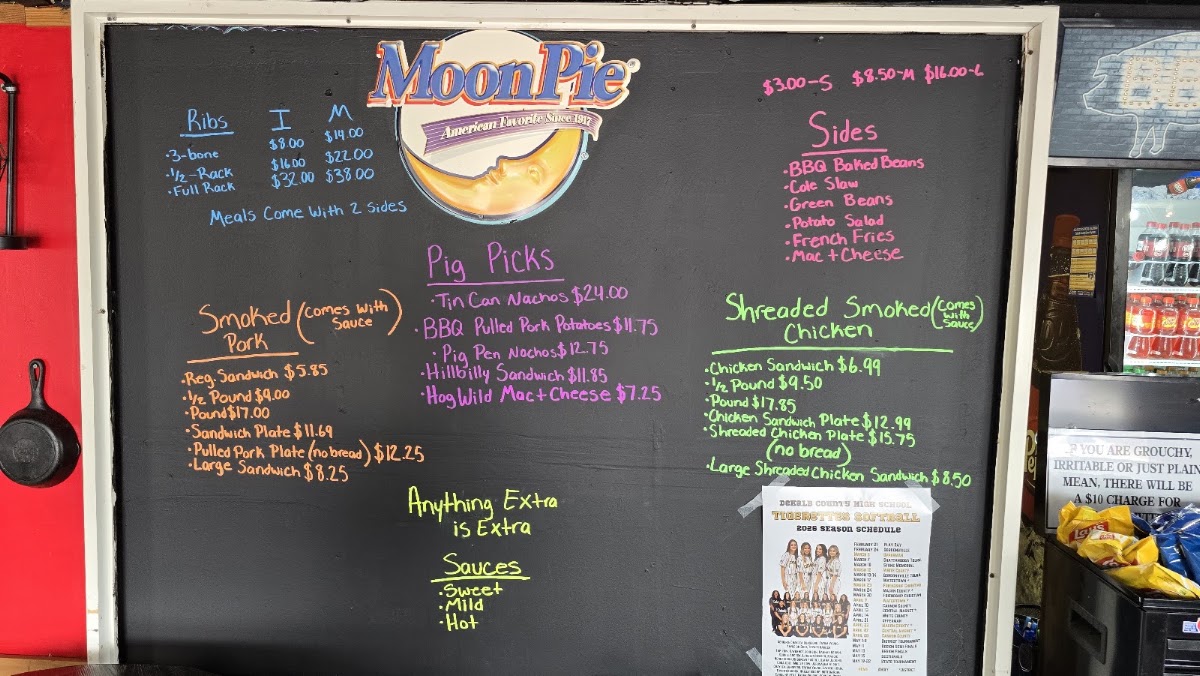 MoonPie®
American Favorite Since 1917
Ribs I M
•3-bone $8.00 $14.00
•1/2-Rack $16.00 $22.00
•Full Rack $32.00 $38.00
Meals Come With 2 Sides
$3.00-S $8.50-M $16.00-L
Sides
•BBQ Baked Beans
•Cole Slaw
•Green Beans
•Potato Salad
•French Fries
•Mac + Cheese
Pig Picks
•Tin Can Nachos $24.00
•BBQ Pulled Pork Potatoes $11.75
•Pig Pen Nachos $12.75
•Hillbilly Sandwich $11.85
•Hog Wild Mac + Cheese $7.25
Smoked Pork (comes with Sauce)
•Reg. Sandwich $5.85
•1/2 Pound $9.00
•Pound $17.00
•Sandwich Plate $11.69
•Pulled Pork Plate (no bread) $12.25
•Large Sandwich $8.25
Shreaded Smoked Chicken (comes with Sauce)
•Chicken Sandwich $6.99
•1/2 Pound $9.50
•Pound $17.85
•Chicken Sandwich Plate $12.99
•Shreaded Chicken Plate $15.75
(no bread)
•Large Shreaded Chicken Sandwich $8.50
Anything Extra
is Extra
Sauces
•Sweet
•Mild
•Hot
DeKalb County High School
Tigerettes Softball
2026 Season Schedule
IF YOU ARE GROUCHY,
IRRITABLE OR JUST PLAIN
MEAN, THERE WILL BE
A $10 CHARGE FOR
Lay's